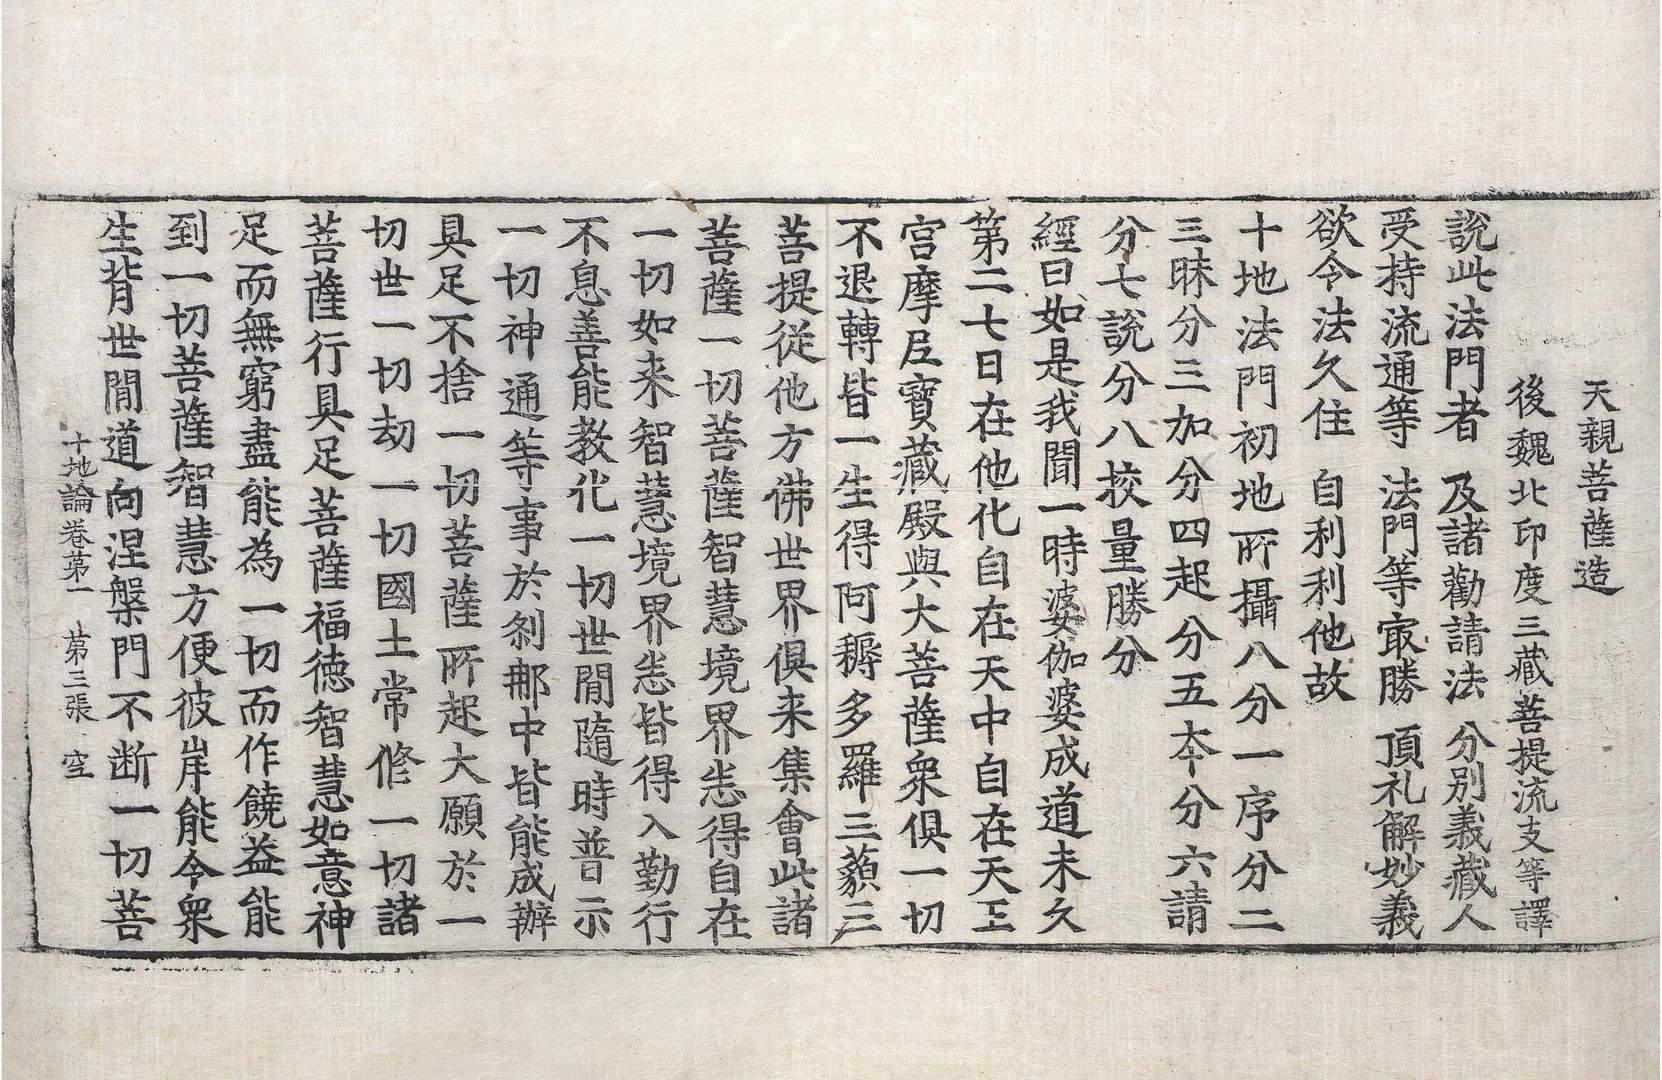 天親菩薩造
後魏北印度三藏菩提流支等譯
說此法門者 及諸勸請法 分別義藏人
受持流通等 法門等㝡勝 頂礼解妙義
欲令法久住 自利利他故
十地法門初地所攝八分一序分二
三昧分三加分四起分五夲分六請
分七說分八挍量勝分
經曰如是我聞一時婆伽婆成道未久
第二七日在他化自在天中自在天王
宮摩尼寶藏殿與大菩薩衆俱一切
不退轉皆一生得阿耨多羅三藐三
菩提從他方佛世界俱来集會此諸
菩薩一切菩薩智慧境界悉得自在
一切如来智慧境界悉皆得入勤行
不息善能教化一切世間隨時普示
一切神通等事於剎那中皆能成辦
具足不捨一切菩薩所起大願於一
切世一切劫一切國土常修一切諸
菩薩行具足菩薩福德智慧如意神
足而無窮盡能為一切而作饒益能
到一切菩薩智慧方便彼岸能令衆
生背世間道向涅槃門不断一切菩
十地論卷苐一 苐三張 空